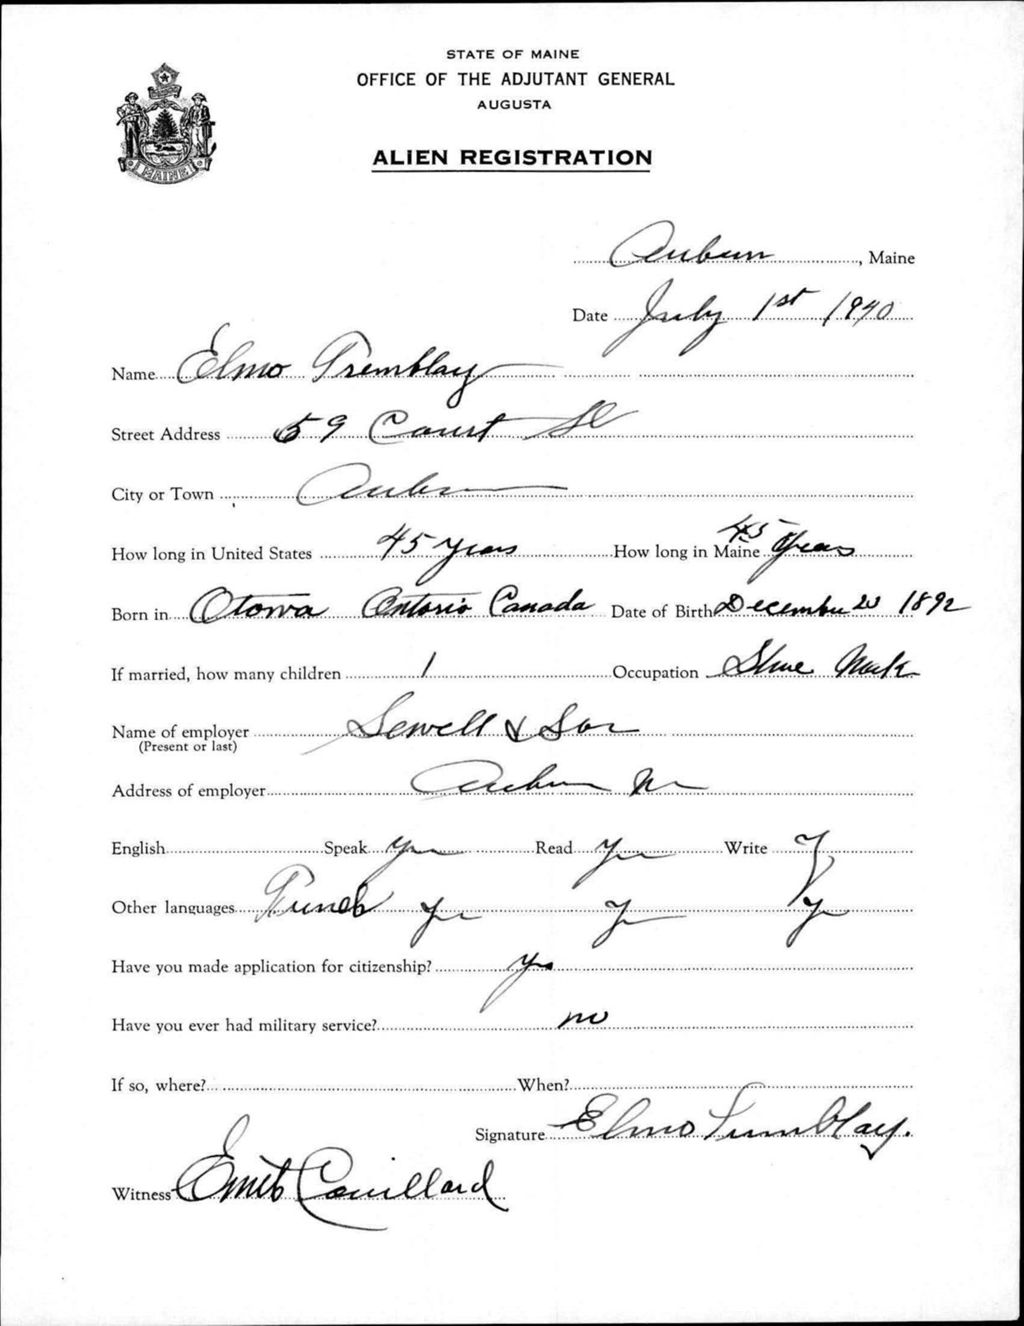 STATE OF MAINE
OFFICE OF THE ADJUTANT GENERAL
AUGUSTA
MAINE
ALIEN REGISTRATION
Auburn, Maine
Date July 1st 1940
Name Elmo Tremblay
Street Address 59 Court St
City or Town Auburn
How long in United States 45 years How long in Maine 45 years
Born in Otowa Ontario Canada Date of Birth December 1892
If married, how many children 1 Occupation Shoe Work
Name of employer Sewell & Son
(Present or last)
Address of employer Auburn Me
English Speak Yes Read Yes Write Y
Other languages French Yes Y Y
Have you made application for citizenship? Yes
Have you ever had military service? no
If so, where? When?
Signature Elmo Tremblay.
Witness Couillard